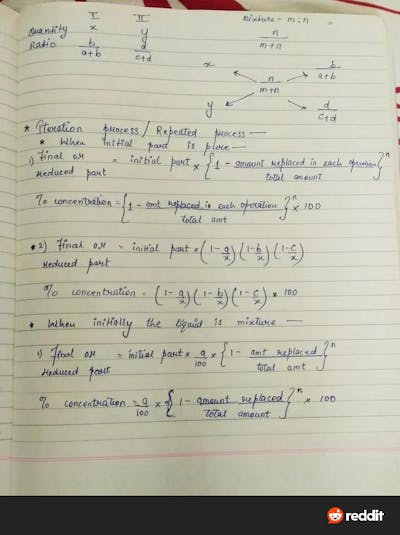 I II mixture = m:n =
Quantity x y n/(m+n)
Ratio b/(a+b) d/(c+d)
x b/(a+b)
n/(m+n)
y d/(c+d)
* Iteration process / Repeated process —
* When initial part is pure —
1) Final or reduced part = initial part × {1 - amount replaced in each operation / total amount}^n
% concentration = {1 - amt replaced in each operation / total amt}^n × 100
* 2) Final or reduced part = initial part × (1-a/x) (1-b/x) (1-c/x)
% concentration = (1-a/x) (1-b/x) (1-c/x) × 100
* When initially the liquid is mixture —
1) Final or reduced part = initial part × a/100 × {1 - amt replaced / total amt}^n
% concentration = a/100 × {1 - amount replaced / total amount}^n × 100
reddit